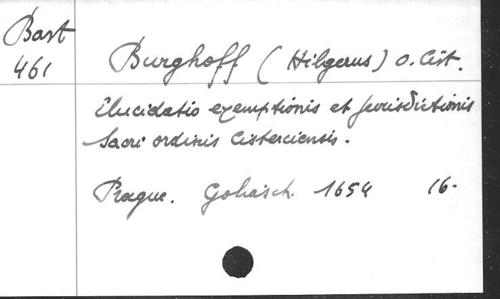 Bast
461
Burghoff (Hilgerus) O. Cist.
Elucidatio exemptionis et jurisdictionis
Sacri ordinis Cisterciensis.
Prague. Gohasch. 1654 16-